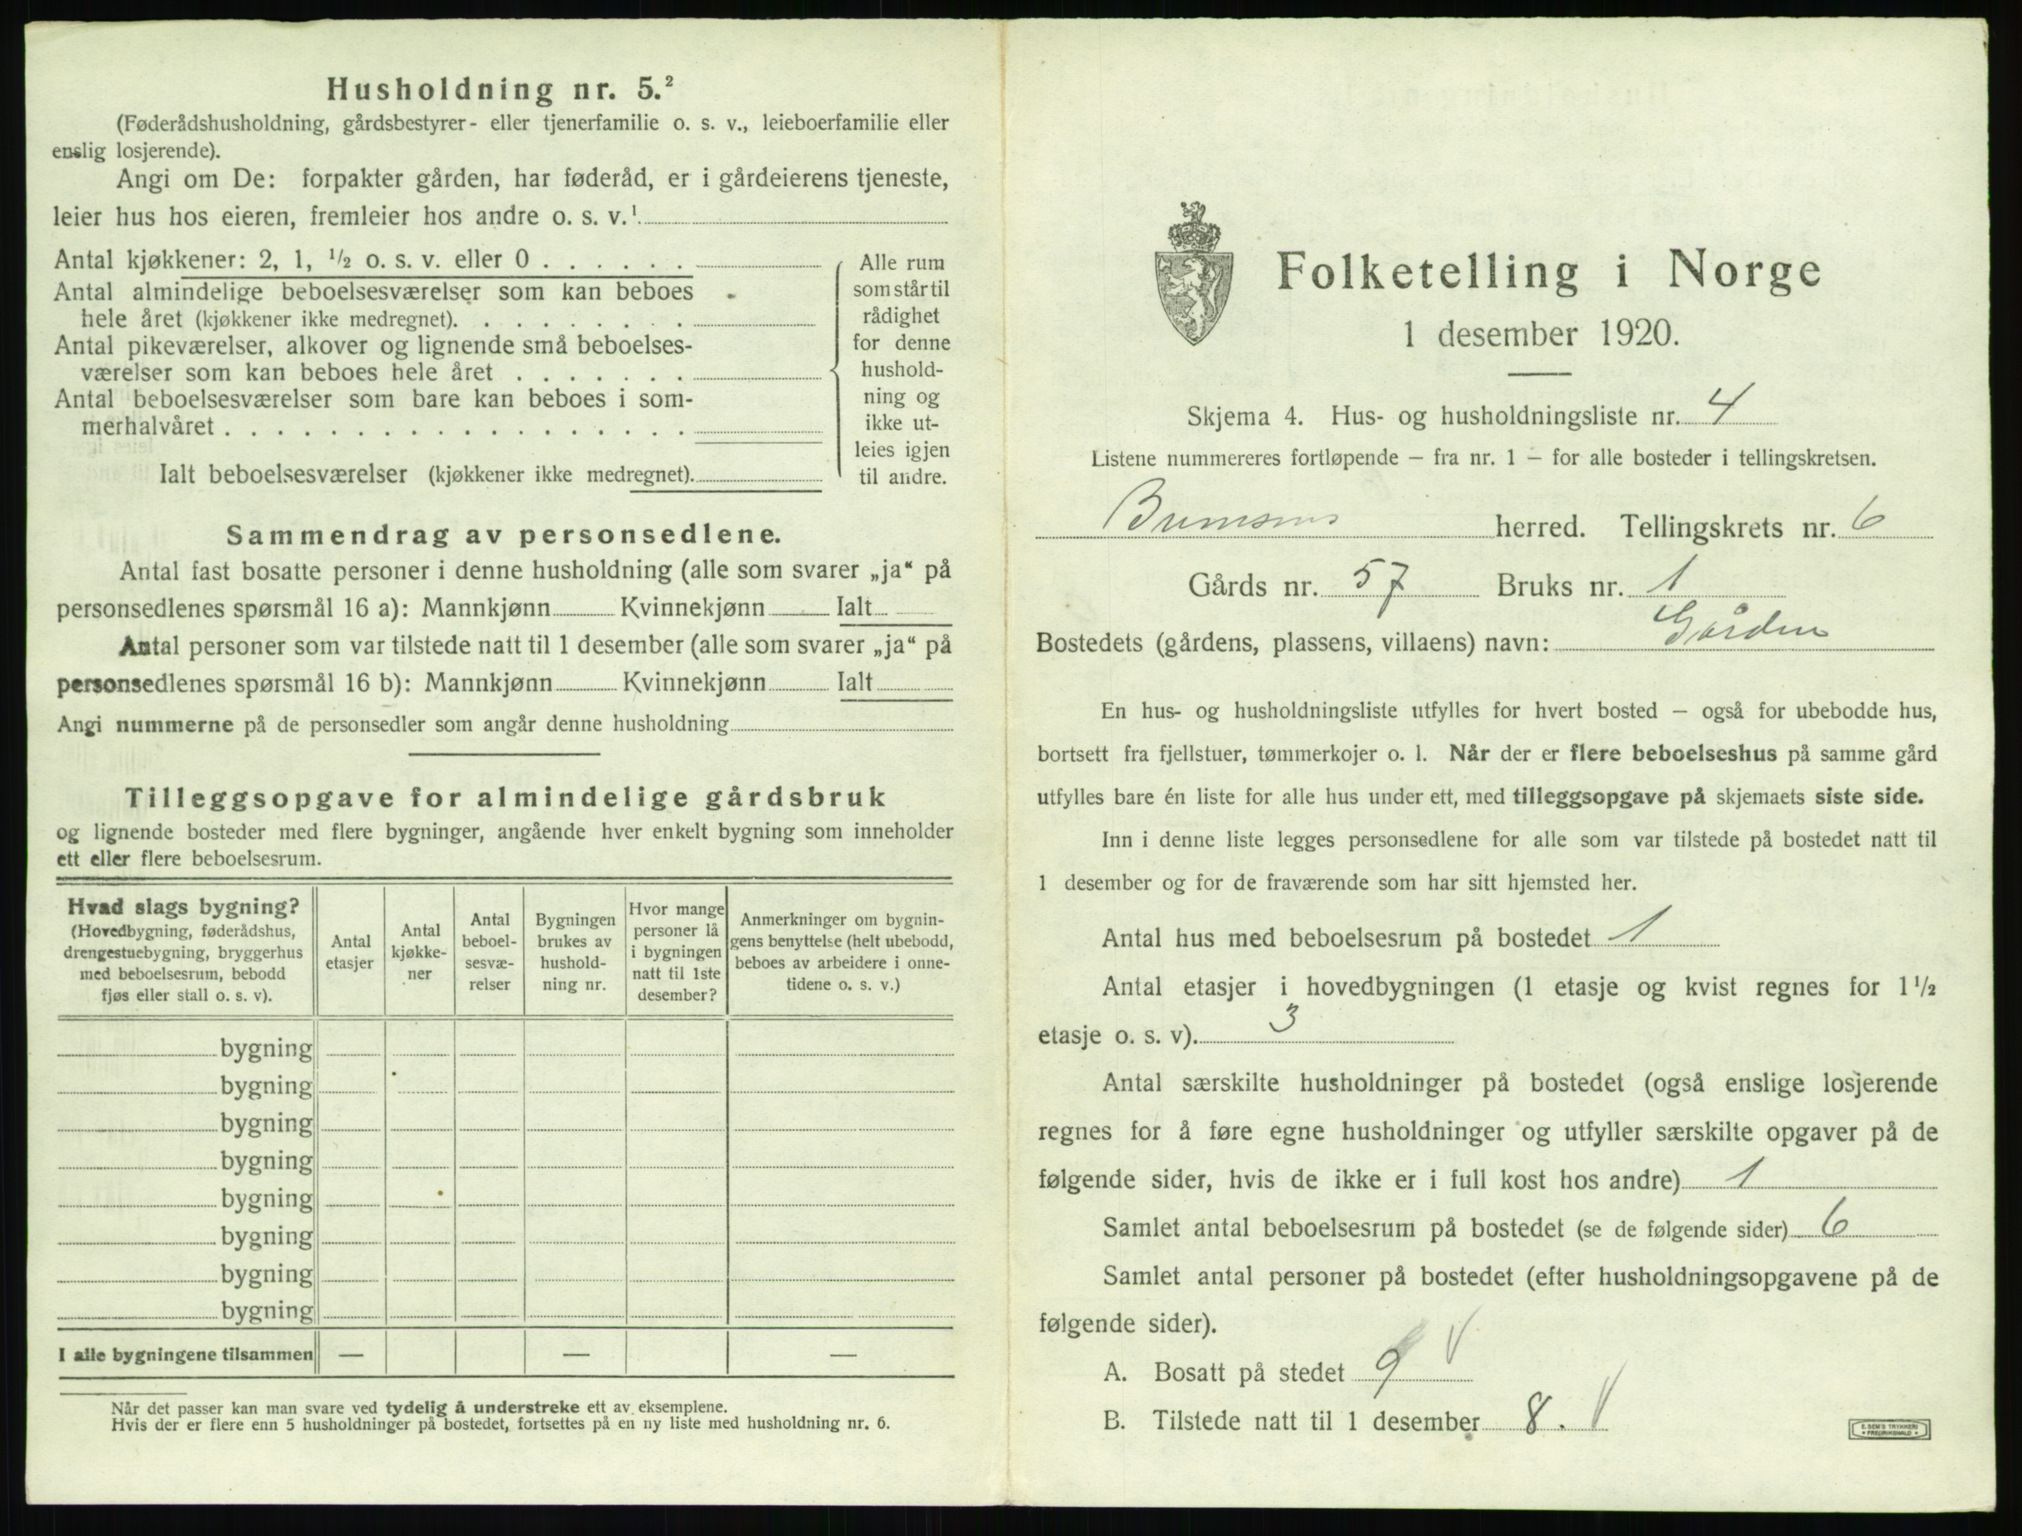 Husholdning nr. 5.²
(Føderådshusholdning, gårdsbestyrer- eller tjenerfamilie o. s. v., leieboerfamilie eller
enslig losjerende).
Angi om De: forpakter gården, har føderåd, er i gårdeierens tjeneste,
leier hus hos eieren, fremleier hos andre o. s. v.¹
Antal kjøkkener: 2, 1, ½ o. s. v. eller 0
Antal almindelige beboelsesværelser som kan beboes
hele året (kjøkkener ikke medregnet).
Antal pikeværelser, alkover og lignende små beboelses-
værelser som kan beboes hele året
Antal beboelsesværelser som bare kan beboes i som-
merhalvåret
Ialt beboelsesværelser (kjøkkener ikke medregnet).
Alle rum
som står til
rådighet
for denne
hushold-
ning og
ikke ut-
leies igjen
til andre.
Sammendrag av personsedlene.
Antal fast bosatte personer i denne husholdning (alle som svarer „ja“ på
personsedlenes spørsmål 16 a): Mannkjønn Kvinnekjønn Ialt
Antal personer som var tilstede natt til 1 desember (alle som svarer „ja“ på
personsedlenes spørsmål 16 b): Mannkjønn Kvinnekjønn Ialt
Angi nummerne på de personsedler som angår denne husholdning
Tilleggsopgave for almindelige gårdsbruk
og lignende bosteder med flere bygninger, angående hver enkelt bygning som inneholder
ett eller flere beboelsesrum.
Hvad slags bygning?
(Hovedbygning, føderådshus,
drengestuebygning, bryggerhus
med beboelsesrum, bebodd
fjøs eller stall o. s. v).
Antal
etasjer
Antal
kjøkke-
ner
Antal
beboel-
sesvæ-
relser
Bygningen
brukes av
hushold-
ning nr.
Hvor mange
personer lå
i bygningen
natt til 1ste
desember?
Anmerkninger om bygnin-
gens benyttelse (helt ubebodd,
beboes av arbeidere i onne-
tidene o. s. v.)
bygning
bygning
bygning
bygning
bygning
bygning
bygning
bygning
I alle bygningene tilsammen — — —
Når det passer kan man svare ved tydelig å understreke ett av eksemplene.
Hvis der er flere enn 5 husholdninger på bostedet, fortsettes på en ny liste med husholdning nr. 6.
Folketelling i Norge
1 desember 1920.
Skjema 4. Hus- og husholdningsliste nr. 4
Listene nummereres fortløpende – fra nr. 1 – for alle bosteder i tellingskretsen.
herred. Tellingskrets nr. 6
Gårds nr. 57 Bruks nr. 1
Bostedets (gårdens, plassens, villaens) navn: Gården
En hus- og husholdningsliste utfylles for hvert bosted – også for ubebodde hus,
bortsett fra fjellstuer, tømmerkojer o. l. Når der er flere beboelseshus på samme gård
utfylles bare én liste for alle hus under ett, med tilleggsopgave på skjemaets siste side.
Inn i denne liste legges personsedlene for alle som var tilstede på bostedet natt til
1 desember og for de fraværende som har sitt hjemsted her.
Antal hus med beboelsesrum på bostedet 1
Antal etasjer i hovedbygningen (1 etasje og kvist regnes for 1½
etasje o. s. v). 3
Antal særskilte husholdninger på bostedet (også enslige losjerende
regnes for å føre egne husholdninger og utfyller særskilte opgaver på de
følgende sider, hvis de ikke er i full kost hos andre) 1
Samlet antal beboelsesrum på bostedet (se de følgende sider) 6
Samlet antal personer på bostedet (efter husholdningsopgavene på de
følgende sider).
A. Bosatt på stedet 9 V
B. Tilstede natt til 1 desember 8. V
E. SEM'S TRYKKERI
• FREDRIKSHALD •